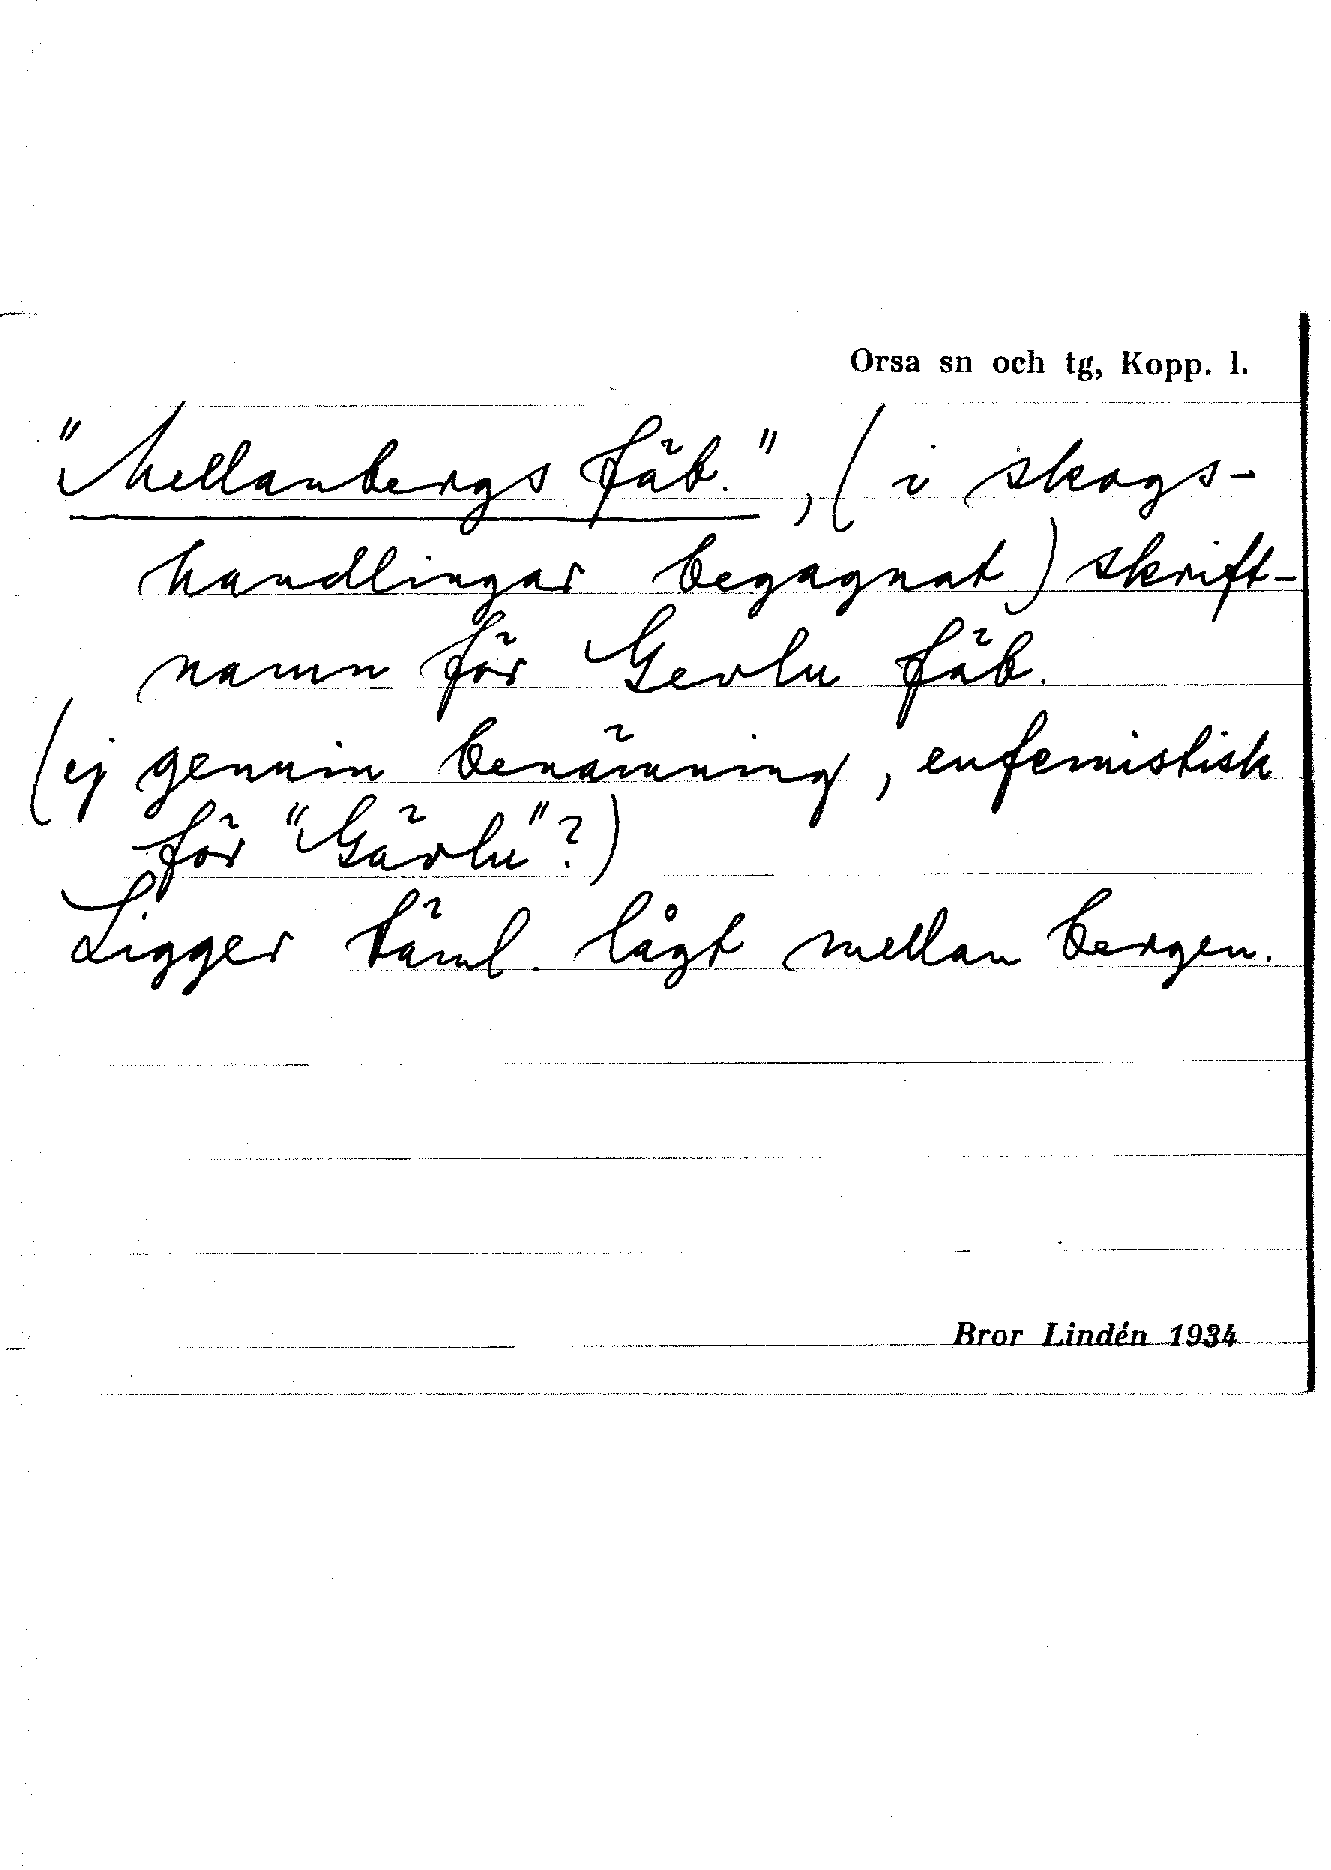 Orsa sn och tg, Kopp. l.
"Mellanbergs fäb.", (i skogs-
handlingar begagnat) skrift-
namn för Gevlu fäb.
(ej genuin benämning, eufemistisk
för "Gävlu"?)
Ligger täml. lågt mellan bergen.
Bror Lindén 1934